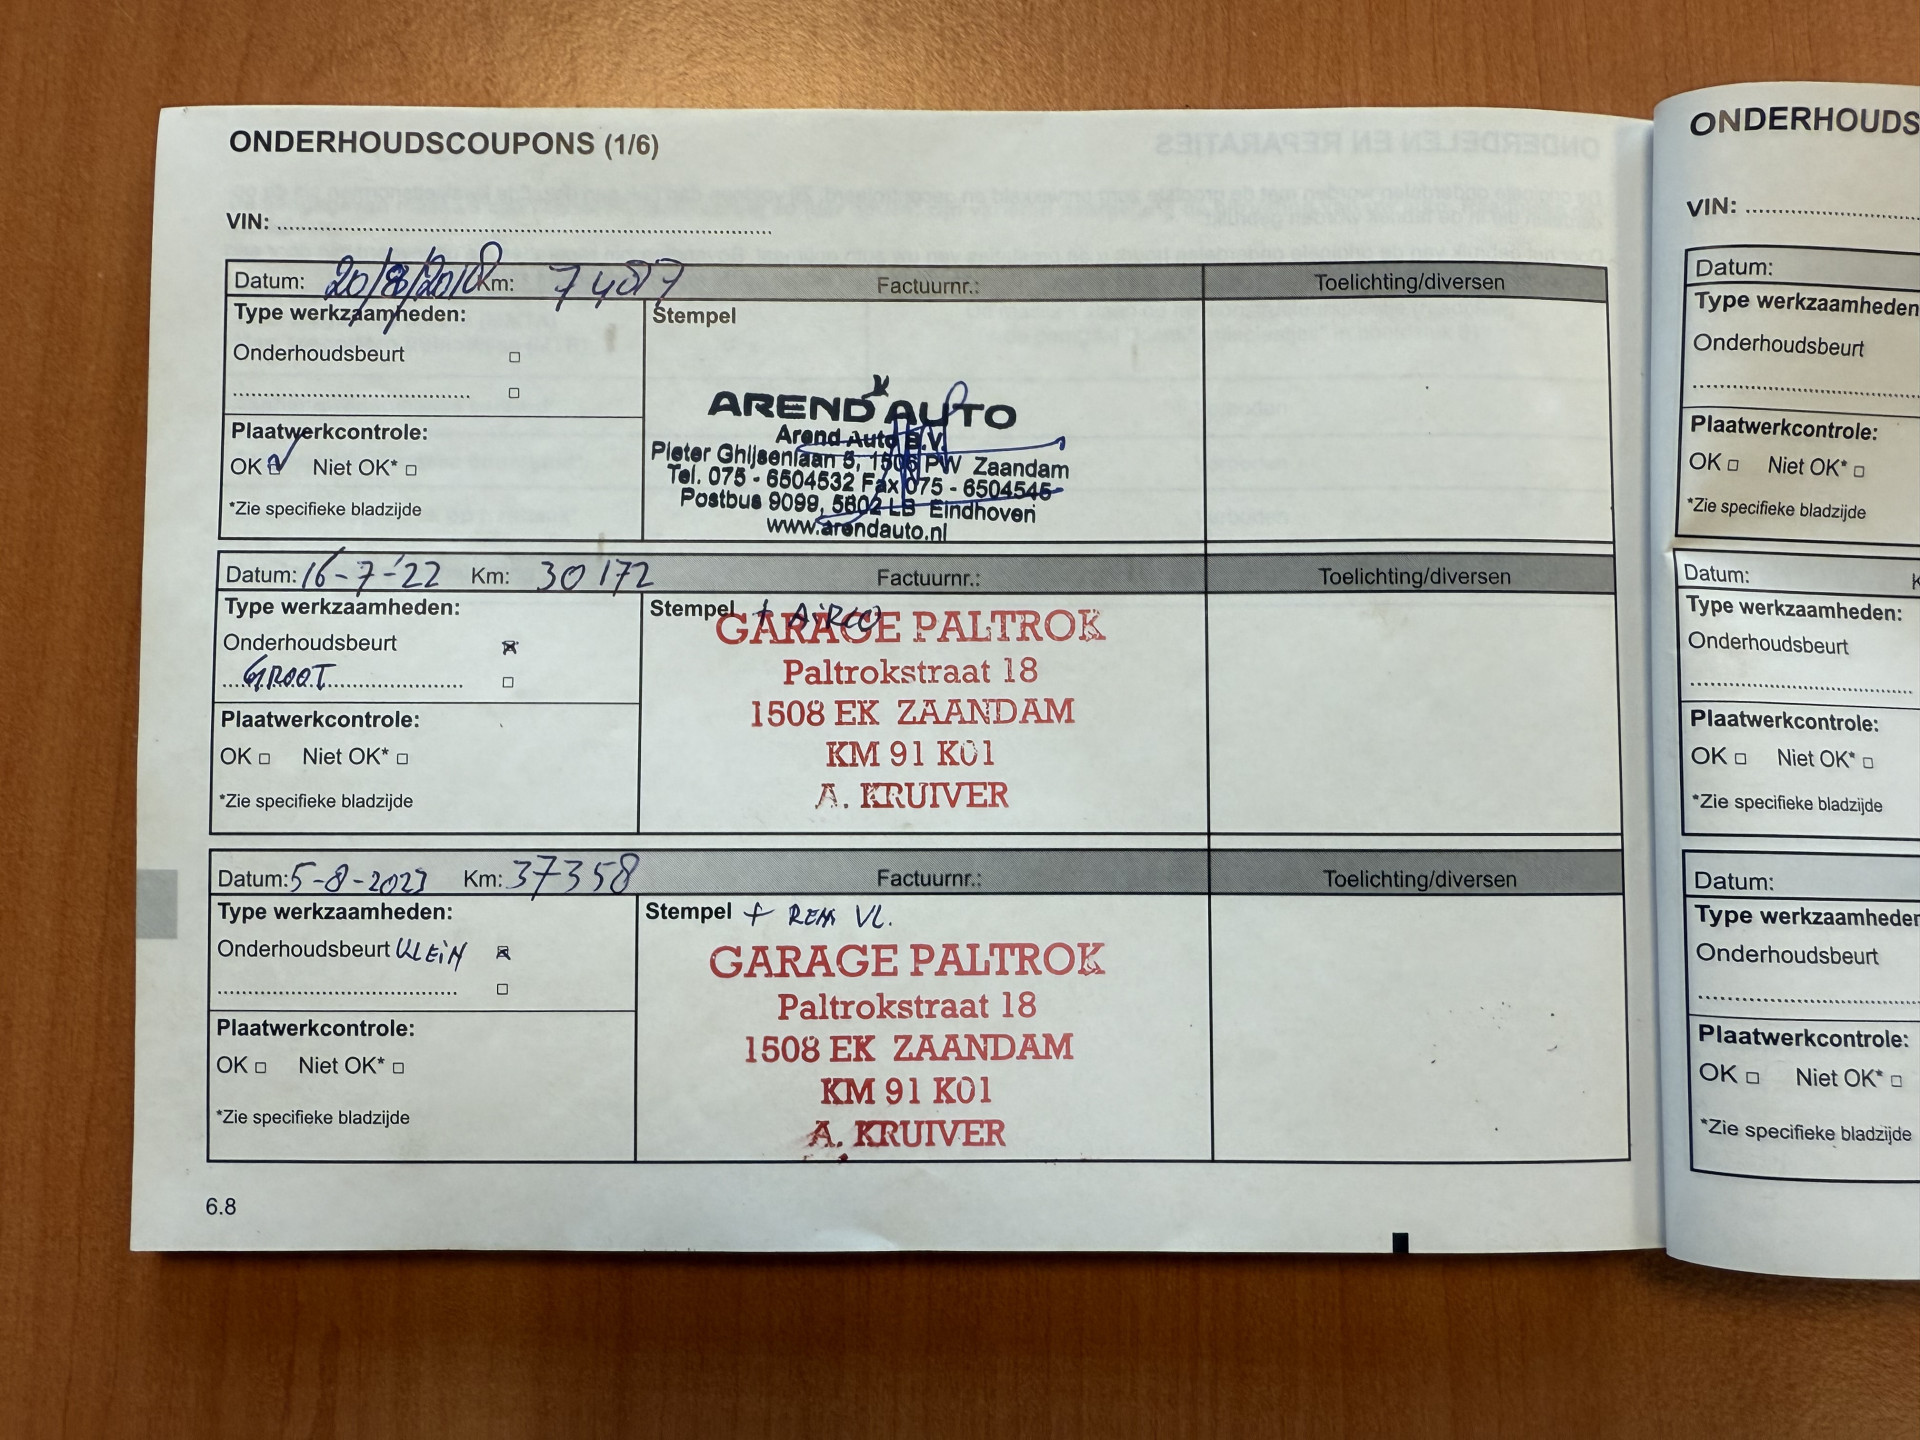 ONDERHOUDSCOUPONS (1/6)
VIN: ........................................
Datum: 20/8/2018 Km: 7487 Factuurnr.: Toelichting/diversen
Type werkzaamheden:
Stempel
Onderhoudsbeurt
AREND AUTO
Arend Auto B.V.
Plaatwerkcontrole:
Pieter Ghijsenlaan 5, 1506 PW Zaandam
OK Niet OK*
Tel. 075 - 6504532 Fax 075 - 6504545
Postbus 9099, 5602 LB Eindhoven
*Zie specifieke bladzijde
www.arendauto.nl
Datum: 16-7-'22 Km: 30172 Factuurnr.: Toelichting/diversen
Type werkzaamheden:
Stempel + AiRCO
Onderhoudsbeurt
GROOT
GARAGE PALTROK
Paltrokstraat 18
1508 EK ZAANDAM
KM 91 K01
A. KRUIVER
Plaatwerkcontrole:
OK Niet OK*
*Zie specifieke bladzijde
Datum: 5-8-2023 Km: 37358 Factuurnr.: Toelichting/diversen
Type werkzaamheden:
Stempel + REM VL.
Onderhoudsbeurt KLEiN
GARAGE PALTROK
Paltrokstraat 18
1508 EK ZAANDAM
KM 91 K01
A. KRUIVER
Plaatwerkcontrole:
OK Niet OK*
*Zie specifieke bladzijde
6.8
ONDERHOUDS
VIN: ....................
Datum:
Type werkzaamheden
Onderhoudsbeurt
Plaatwerkcontrole:
OK Niet OK*
*Zie specifieke bladzijde
Datum: K
Type werkzaamheden:
Onderhoudsbeurt
Plaatwerkcontrole:
OK Niet OK*
*Zie specifieke bladzijde
Datum:
Type werkzaamheden
Onderhoudsbeurt
Plaatwerkcontrole:
OK Niet OK*
*Zie specifieke bladzijde